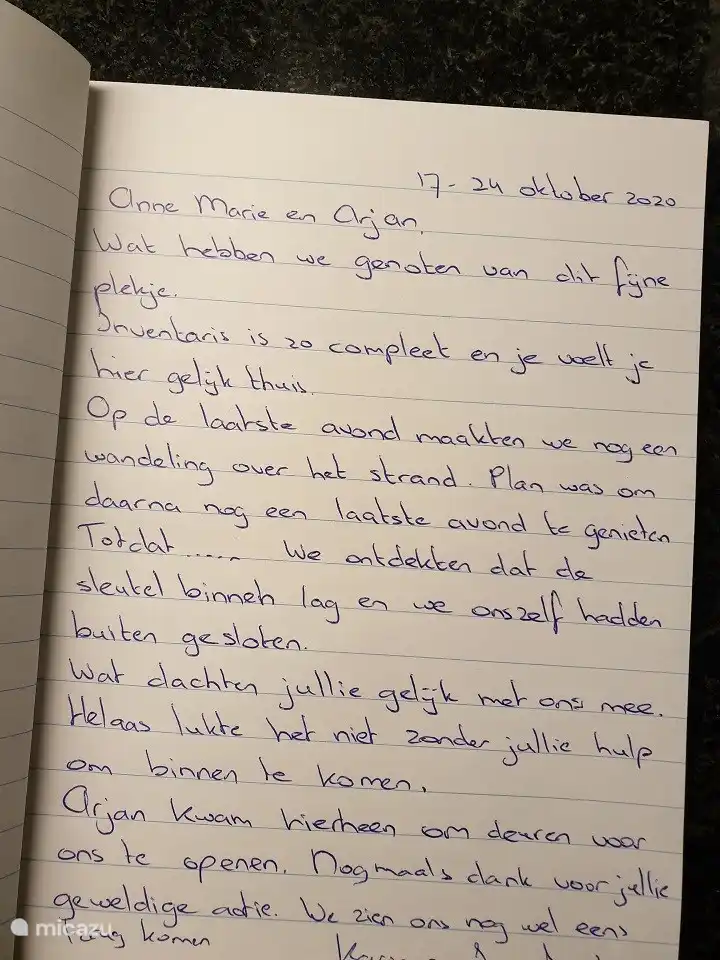 17 - 24 oktober 2020
Anne Marie en Arjan,
Wat hebben we genoten van dit fijne
plekje.
Inventaris is zo compleet en je voelt je
hier gelijk thuis.
Op de laatste avond maakten we nog een
wandeling over het strand. Plan was om
daarna nog een laatste avond te genieten
Totdat ...... We ontdekten dat de
sleutel binnen lag en we onszelf hadden
buiten gesloten.
Wat dachten jullie gelijk met ons mee.
Helaas lukte het niet zonder jullie hulp
om binnen te komen.
Arjan kwam hierheen om deuren voor
ons te openen. Nogmaals dank voor jullie
geweldige actie. We zien ons nog wel eens
Terug komen
micazu